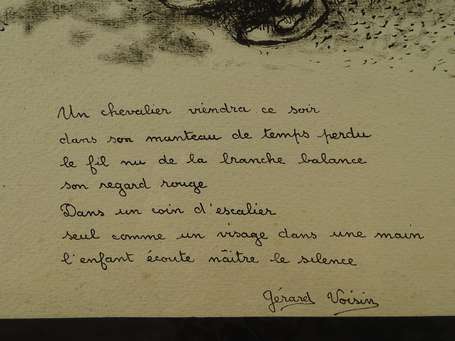 Un chevalier viendra ce soir
dans son manteau de temps perdu
le fil nu de la branche balance
son regard rouge
Dans un coin d'escalier
seul comme un visage dans une main
l'enfant écoute nâitre le silence
Gérard Voisin